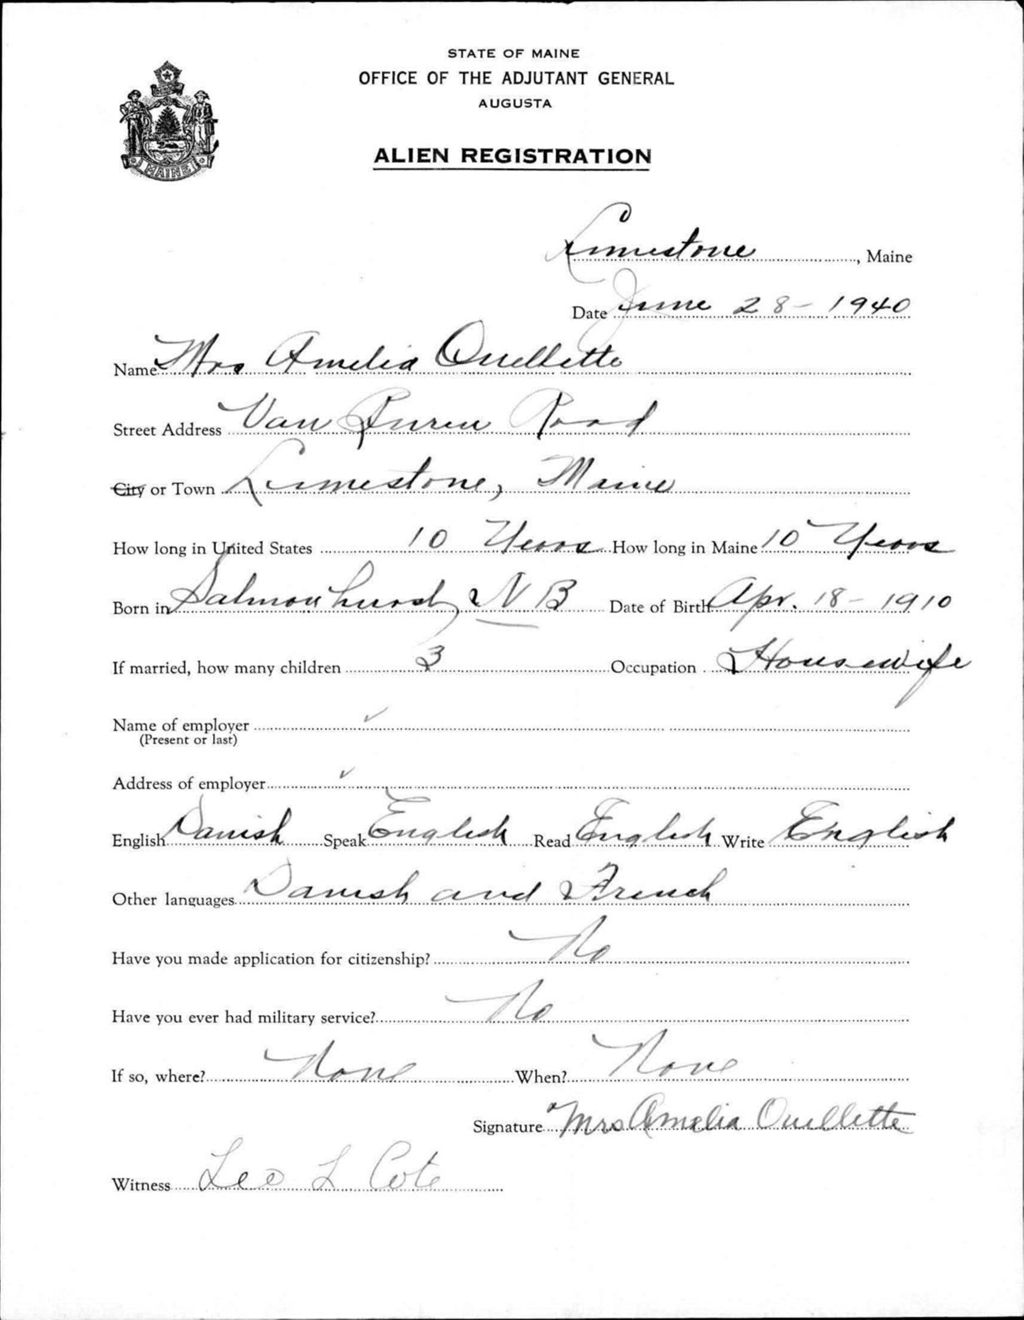 STATE OF MAINE
OFFICE OF THE ADJUTANT GENERAL
AUGUSTA
MAINE
ALIEN REGISTRATION
Limestone, Maine
Date June 28 - 1940
Name Mrs Amelia Ouellette
Street Address Van Buren Road
City or Town Limestone, Maine
How long in United States 10 Years How long in Maine 10 Years
Born in Salmonhurst, N B Date of Birth Apr. 18 - 1910
If married, how many children 3 Occupation Housewife
Name of employer ✓
(Present or last)
Address of employer ✓
English Danish Speak English Read English Write English
Other languages Danish and French
Have you made application for citizenship? No
Have you ever had military service? No
If so, where? None When? None
Signature Mrs Amelia Ouellette
Witness Leo L Cote